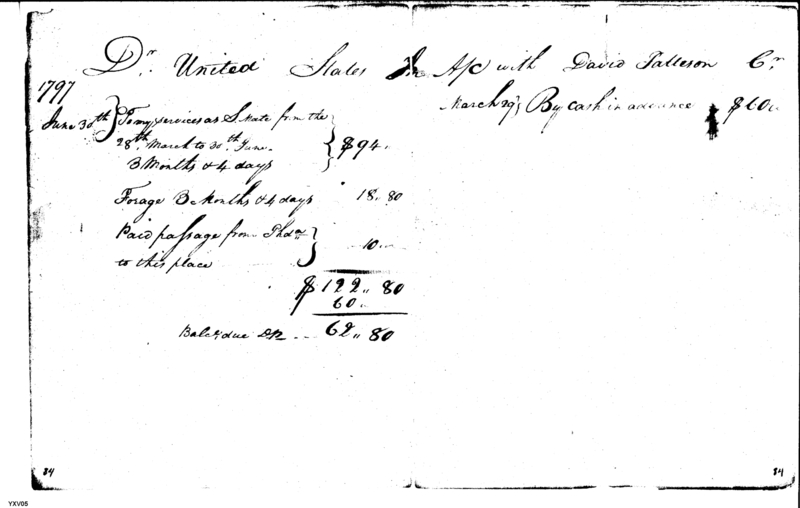 Dr. United States In A/C with David Patteson Cr
1797
June 30th } To my services as S. Mate from the
28th March to 30th June.
3 Months & 4 days } $94"
Forage 3 Months & 4 days 18"80
Paid passage from Phda
to this place } 10"
$122"80
60"
Balce due DP 62"80
March 29 } By cash in advance $60"
84
84
YXV05